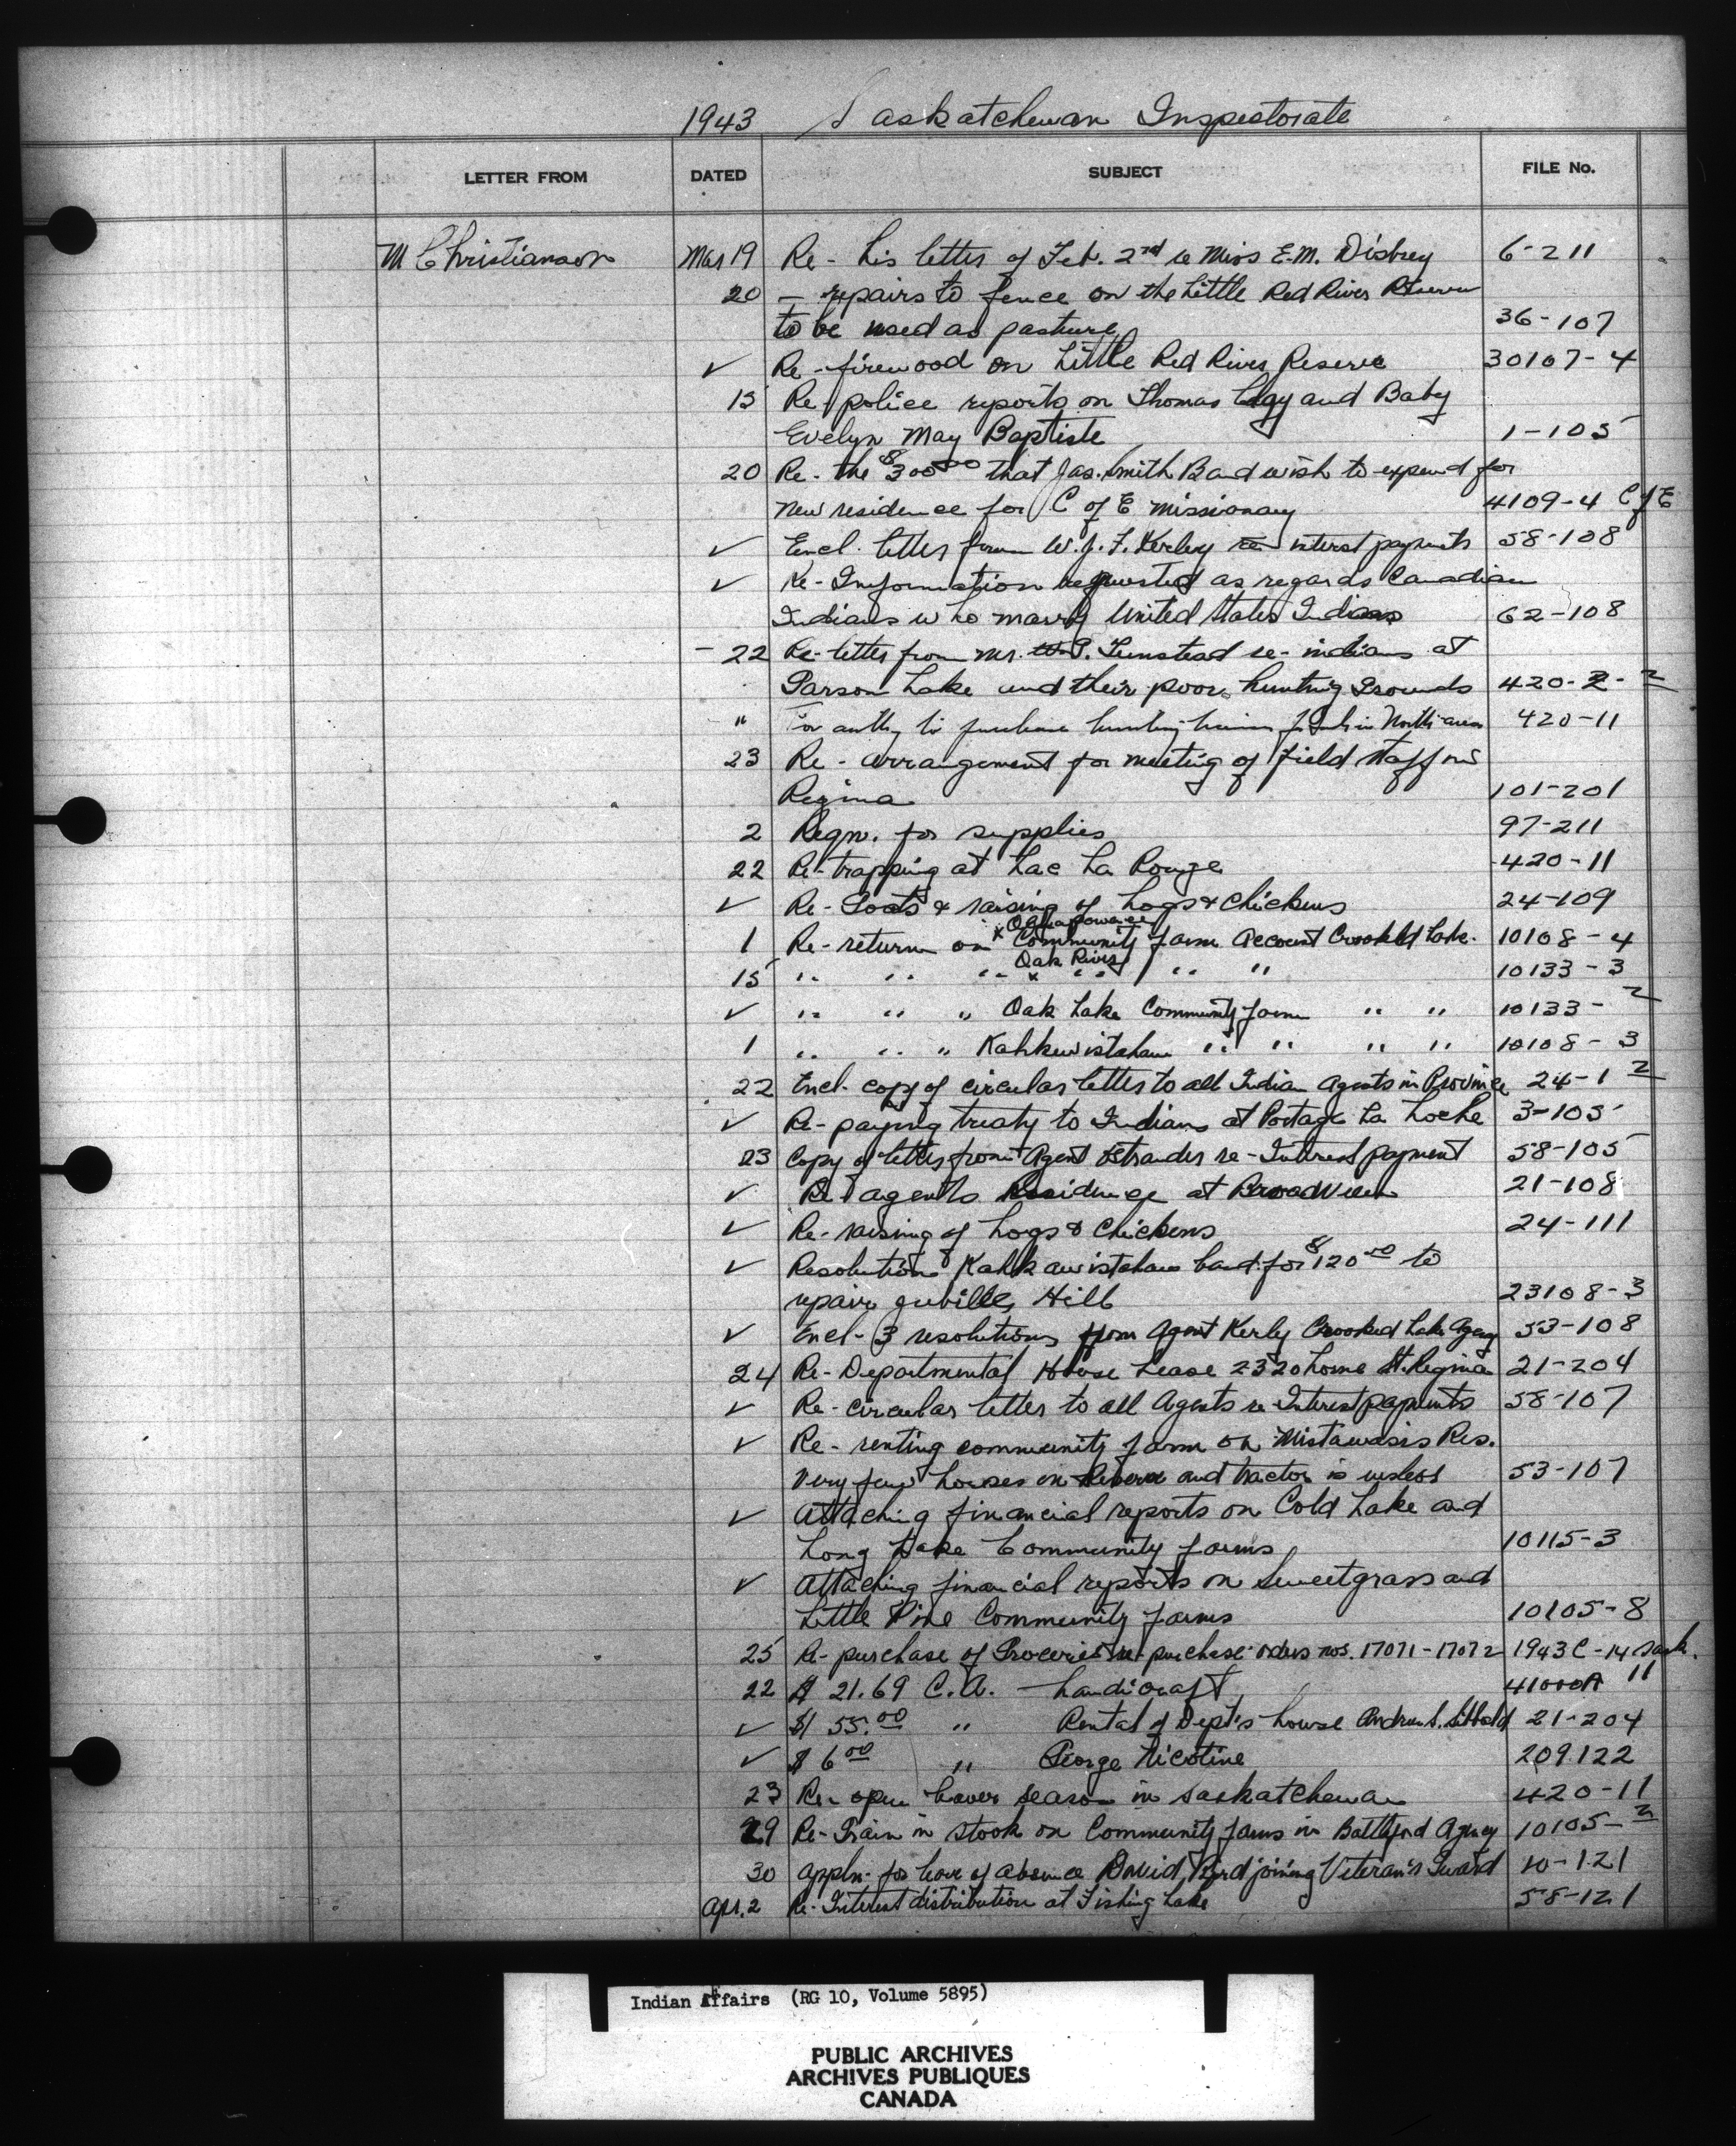 1943 Saskatchewan Inspectorate
LETTER FROM DATED SUBJECT FILE No.
M Christianson Mar 19 Re - his letter of Feb. 2nd re Miss E.M. Disbrey 6-211
20 - repairs to fence on the Little Red River Reserve
to be used as pasture 36-107
✓ Re - firewood on Little Red River Reserve 30107-4
15 Re police reports on Thomas and Baby
Evelyn May Baptiste 1-105
20 Re - the $300.00 that Jas. Smith Band wish to expend for
new residence for C of E missionary 4109-4 C of E
✓ Encl. letter from W.J.F. Kerley re interest payments 58-108
✓ Re - Information requested as regards Canadian
Indians who marry United States Indians 62-108
- 22 Re - letter from Mr. Tunstead re - indians at
Parson Lake and their poor hunting Grounds 420-2-2
" For authy to purchase hunting in North area 420-11
23 Re - arrangement for meeting of field staff in
Regina 101-201
2 Reqn. for supplies 97-211
22 Re - trapping at Lac La Ronge 420-11
✓ Re - Goats & raising of hogs & chickens 24-109
Ochapowace
1 Re - return on x Community farm Account Crooked Lake. 10108-4
Oak River
15 " " " x " " " " 10133-3
✓ " " " Oak Lake Community farm " " 10133-2
1 " " " Kahkewistahaw " " " " 10108-3
22 Encl. copy of circular letter to all Indian Agents in Province 24-1-2
✓ Re - paying treaty to Indians at Portage La Loche 3-105
23 Copy of letter from Agent Ostrander re - Interest payment 58-105
✓ Re agents Residence at Broadview 21-108
✓ Re - raising of hogs & chickens 24-111
✓ Resolution Kahkawistahaw band for $120.00 to
repair jubilee Hill 23108-3
✓ Encl - 3 resolutions from Agent Kerly Crooked Lake Agency 53-108
24 Re - Departmental House Lease 2320 Lorne St. Regina 21-204
✓ Re - circular letter to all Agents re Interest payments 58-107
✓ Re - renting community farm on Mistawasis Res.
Very few horses on Reserve and tractor is useless 53-107
✓ Attaching financial reports on Cold Lake and
Long Lake Community farms 10115-3
✓ Attaching financial reports on Sweetgrass and
Little Pine Community farms 10105-8
25 Re - purchase of Groceries re - purchase orders nos. 17071-17072 1943 C-14 Sask.
22 $ 21.69 C.A. - handicraft 41000A "
✓ $ 55.00 " Rental of Dept's house Andrew S. Sibbald 21-204
✓ $ 6.00 " George Nicotine 209.122
23 Re - open beaver season in Saskatchewan 420-11
29 Re - Grain in stook on Community farms in Battleford Agency 10105-2
30 appln. for leave of absence David Bird joining Veteran's Guard 10-121
Apr. 2 Re - Interest distribution at Fishing Lake 58-121
Indian Affairs (RG 10, Volume 5895)
PUBLIC ARCHIVES
ARCHIVES PUBLIQUES
CANADA